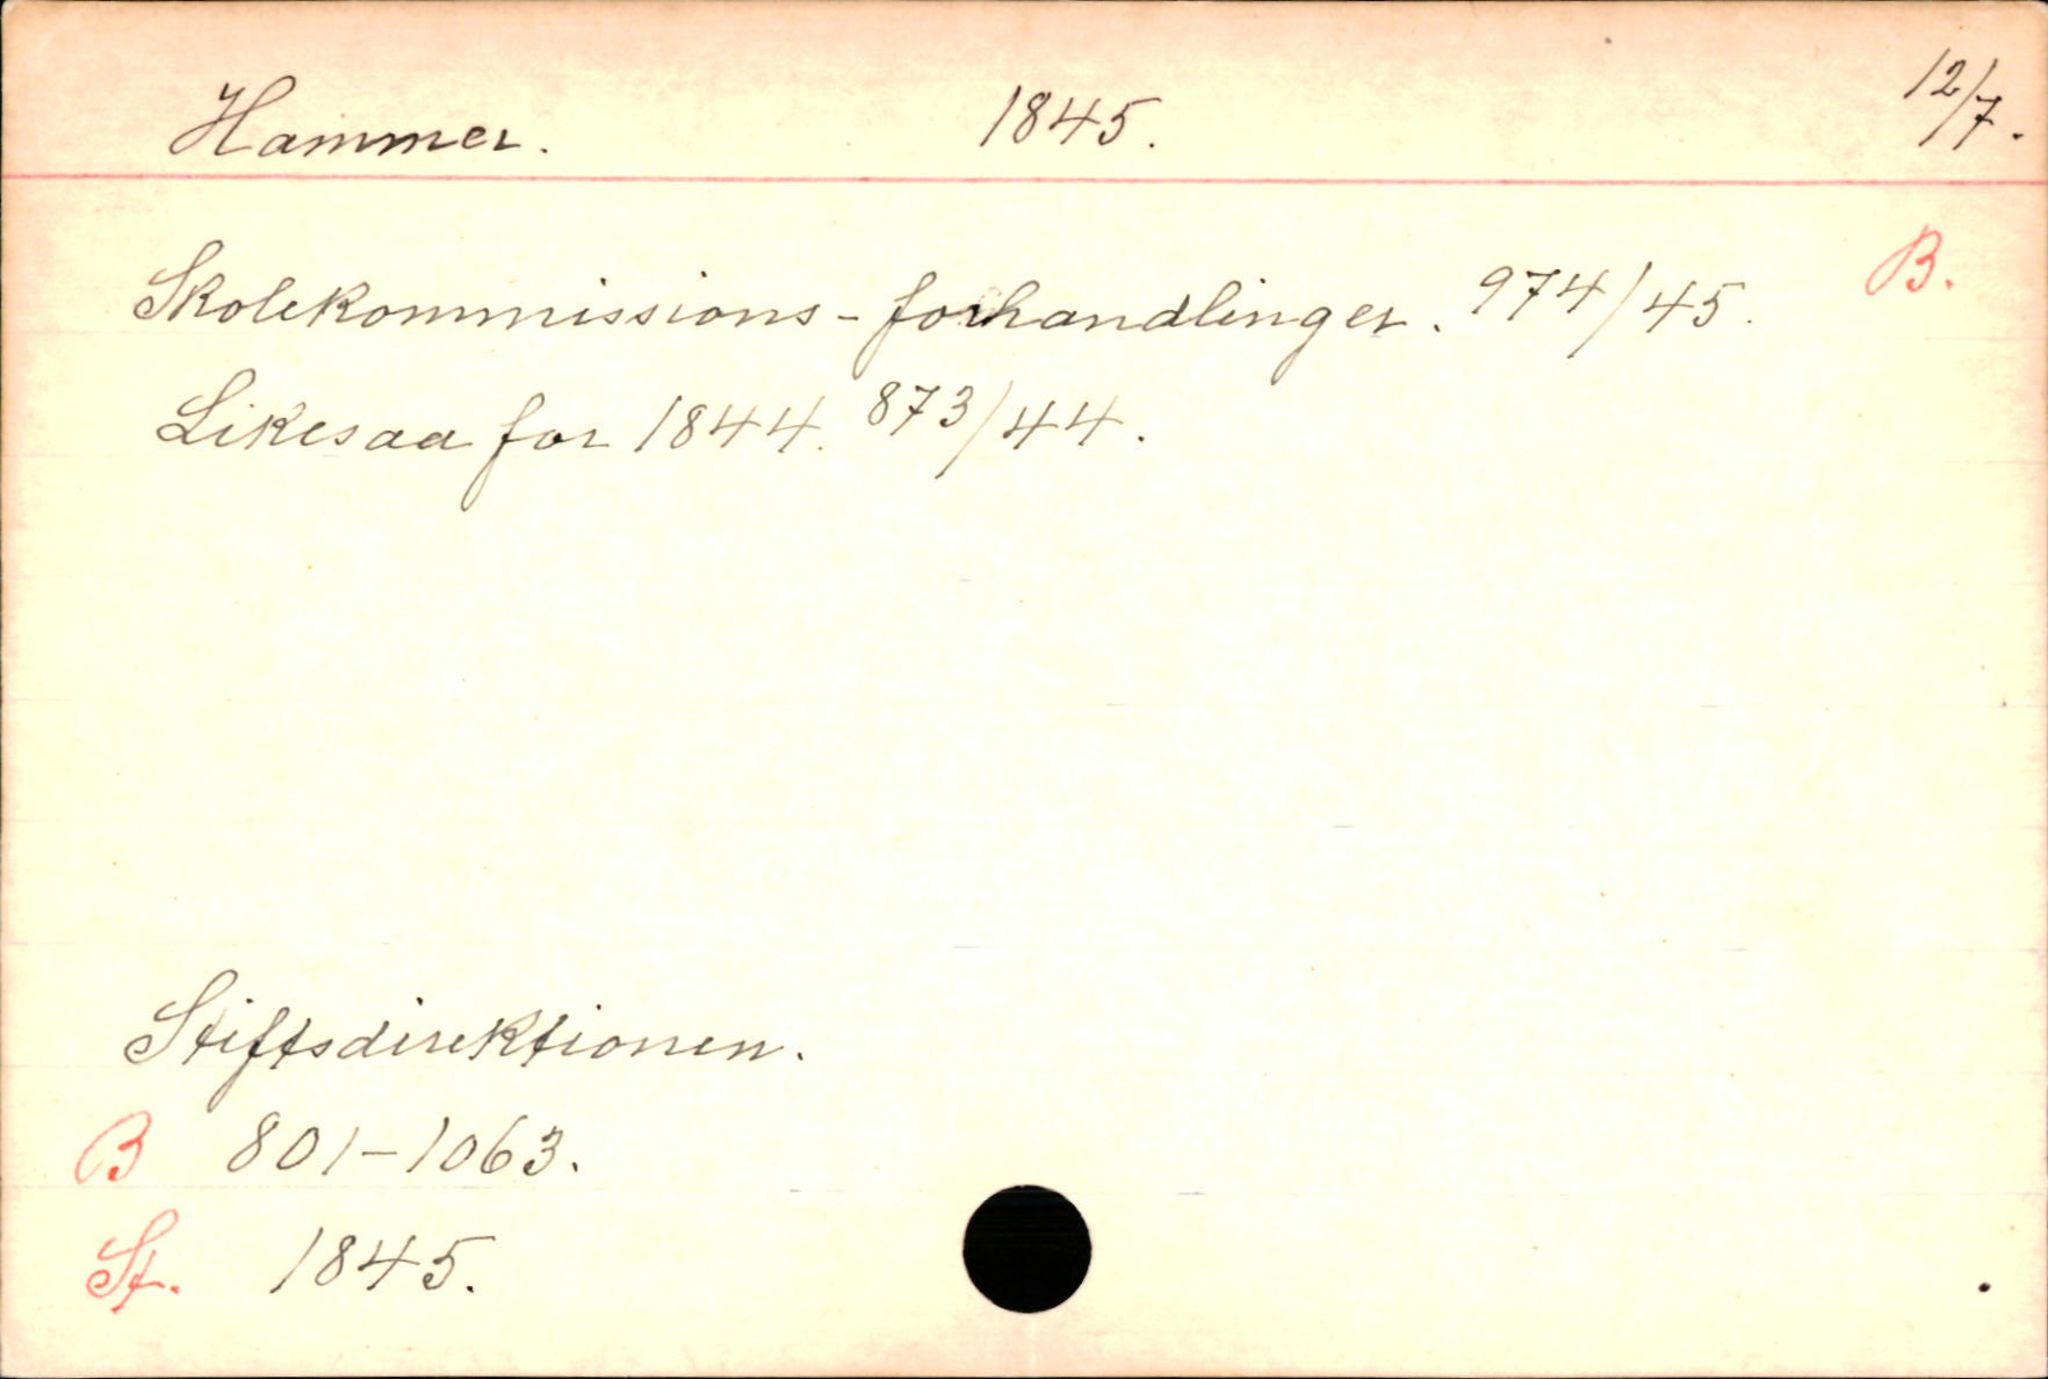 Hammer. 1845. 12/7.
B.
Skolekommissions-forhandlinger. 974/45.
Likesaa for 1844. 873/44.
Stiftsdirektionen.
B 801-1063.
St. 1845.